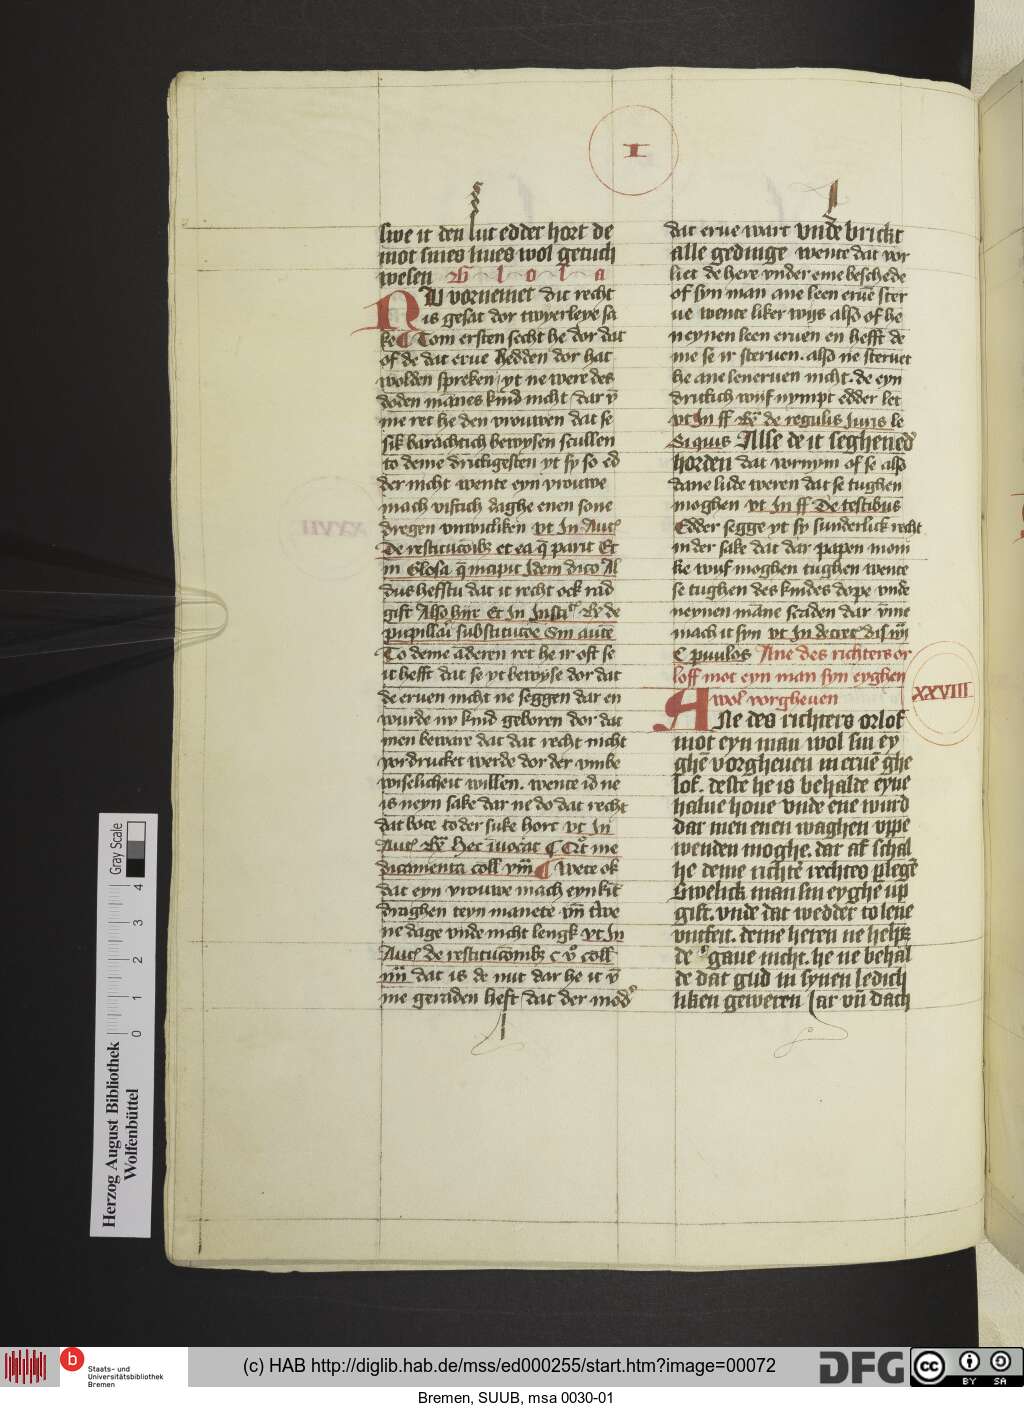 I
swe it den lut edder hort de
mot sines liues wol getuch
wesen G l o s a
NU vornemet dit recht
is gesat dor twyerleye sa
ke Tom ersten secht he dor dat
of de dat erue hedden dor hat
wolden spreken yt ne were des
doden mānes kind nicht dar v̄
me ret he den vrouwen dat se
sik barachtich bewysen scullen
to deme druckigesten yt sy so ed
der nicht wente eyn vrouwe
mach viftich daghe enen sone
dregen vnwicliken vt In Aut
De restitucōibꝫ et ea q̄ parit Et
in Glosa q̄ incipit Idem dico Al
dus hefftu dat it recht ock nad
gift Also hir Et In Insti Rꝫ de
pupillari substitucōe Sin autē
To deme āderen ret he ir oft se
it hefft dat se yt bewyse dor dat
de eruen nicht ne seggen dar en
wurde ny kind geboren dor dat
men beware dat dat recht nicht
vordrucket werde dor der vmbe
wiselicheit willen. wente id ne
is neyn sake dar ne do dat recht
dat bote to der suke hort vt In
Aut Rꝫ Hec iuocat C Qꝛ me
dicamenta coll viii Wete ok
dat eyn vrouwe mach eyn kit
draghen teyn manete vn̄ twe
ne dage vnde nicht lengk vt In
Aut de restitucōnibꝫ c v coll
iiii dat is de nut dar he it v̄
me geraden heft dat der mod
dat erue wart vnde brickt
alle gedinge wente dat vor
liet de here vnder eme beschede
of syn man ane leen eruē ster
ue wente liker wijs also of he
neynen leen eruen en hefft de
me se ir steruen. also ne steruet
he ane leneruen nicht. de eyn
drutlich wijf nympt edder let
vt In ff Rꝫ de regulis Juris le
Siquis Alle de it seghen ed
horden dat vornym of se also
dane lude weren dat se tughen
moghen vt In ff De testibus
Edder segge yt sy sunderlick recht
in der sake dat dar papen moni
ke wijf moghen tughen wente
se tughen des kindes dope vnde
neynen māne scaden dar v̄me
mach it syn vt In decret dis iiii
C puulos Ane des richters or
loff mot eyn man syn eyghen
wol vorgheuen
XXVIII
ANe des richters orlof
mot eyn man wol sin ey
ghē vorgheuen in eruē ghe
lof. deste he is behalde eyne
halue houe vnde ene wurd
dar men enen waghen vppe
wenden moghe. dar af schal
he deme richtē rechtes plegē
Swelick man sin eyghe up
gift. vnde dat wedder to lene
vntfeit. deme heren ne helpꝫ
de gaue nicht. he ne behal
de dat gud in synen ledich
liken geweren Jar vn̄ dach
Herzog August Bibliothek
Wolfenbüttel
Gray Scale
0 1 2 3 4
b Staats- und
Universitätsbibliothek
Bremen
(c) HAB http://diglib.hab.de/mss/ed000255/start.htm?image=00072
DFG
cc BY SA
Bremen, SUUB, msa 0030-01